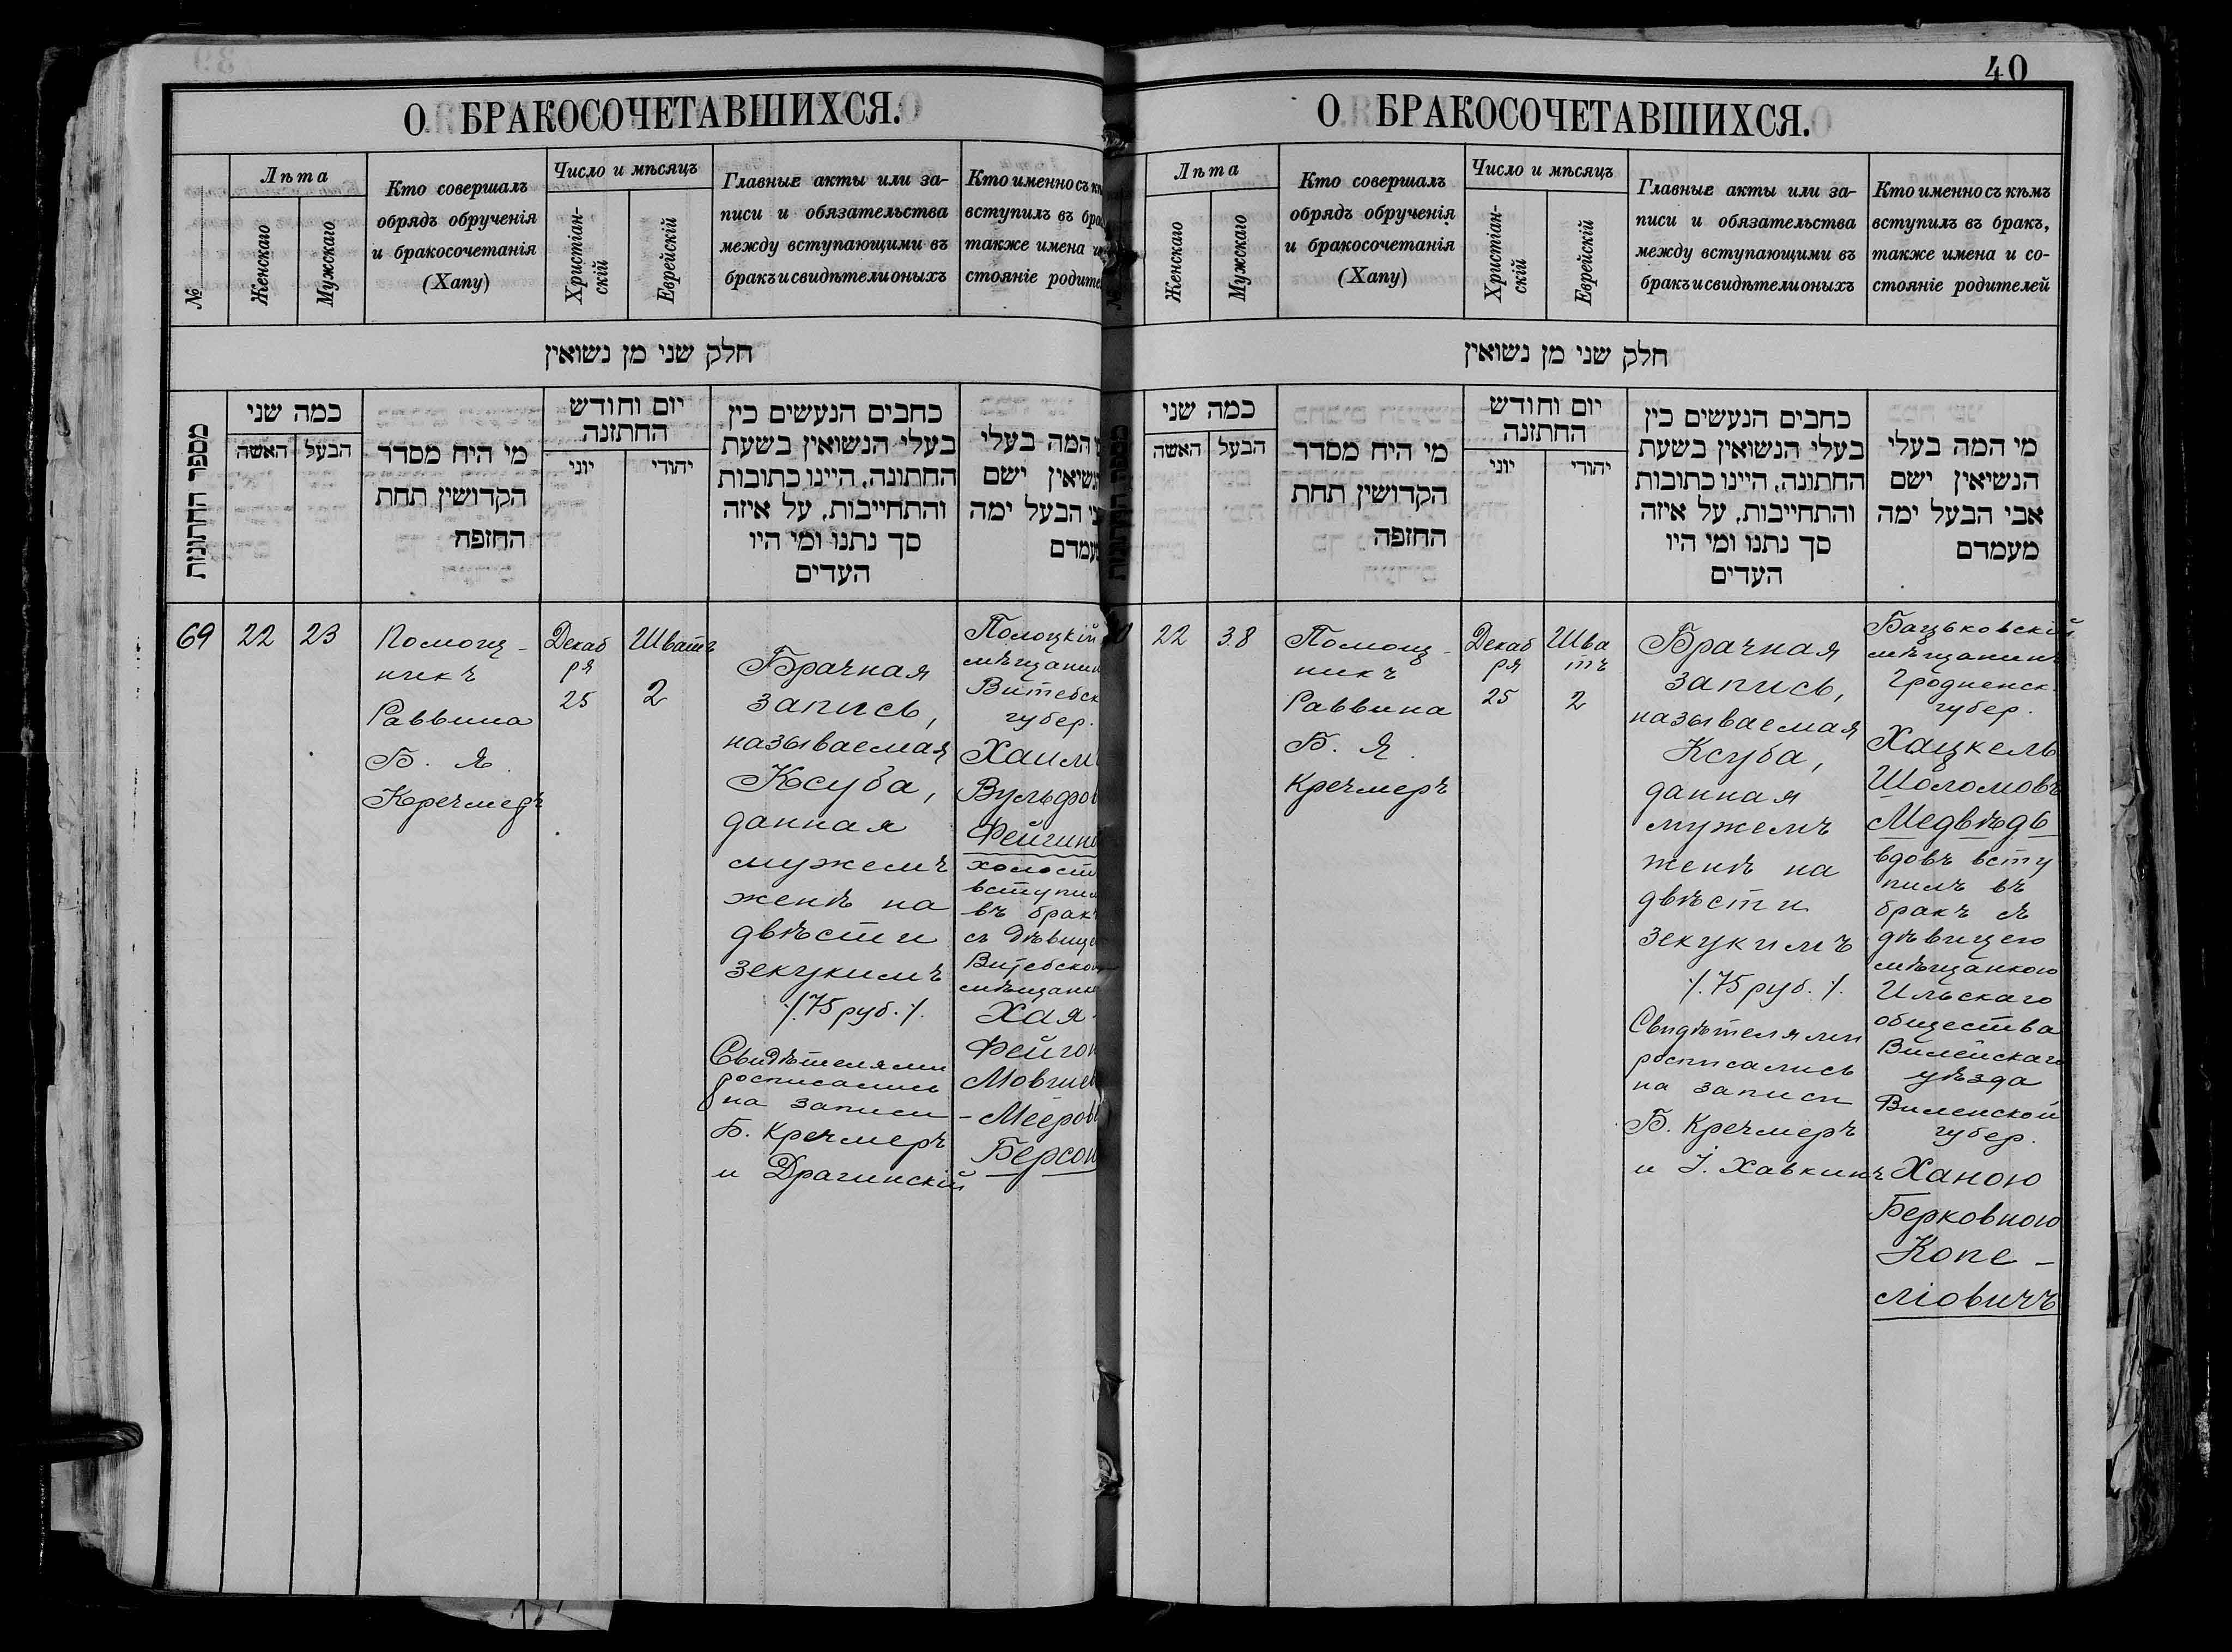 40
О БРАКОСОЧЕТАВШИХСЯ.
№
Лѣта
Женскаго
Мужскаго
Кто совершалъ
обрядъ обрученія
и бракосочетанія
(Хапу)
Число и мѣсяцъ
Христіан-
скій
Еврейскій
Главные акты или за-
писи и обязательства
между вступающими въ
бракъ и свидѣтели оныхъ
Кто именно съ
вступилъ въ
также имена
стояніе
חלק שני מן נשואין
מספר החתונות
כמה שני
האשה
הבעל
מי היח מסדר
הקדושין תחת
החופה
יום וחודש
החתונה
יוני
יהודי
כתבים הנעשים בין
בעלי הנשואין בשעת
החתונה, היינו כתובות
והתחייבות, על איזה
סך נתנו ומי היו
העדים
המה בעלי
ישם
הבעל ימה
69
22
23
Помощ-
никъ
Раввина
Б. Я.
Кречмеръ
Декаб
ря
25
Шватъ
2
Брачная
запись,
называемая
Ксуба,
данная
мужемъ
женѣ на
двѣсти
зекукимъ
/.75 руб./.
Свидѣтелями
росписались
на записи
Б. Кречмеръ
и Драгинскій
Полоцкій
Витебск
губер.
Хаим
въ
съ
Хая
Берсон
О БРАКОСОЧЕТАВШИХСЯ.
Лѣта
Женскаго
Мужскаго
Кто совершалъ
обрядъ обрученія
и бракосочетанія
(Хапу)
Число и мѣсяцъ
Христіан-
скій
Еврейскій
Главные акты или за-
писи и обязательства
между вступающими въ
бракъ и свидѣтели оныхъ
Кто именно съ кѣмъ
вступилъ въ бракъ,
также имена и со-
стояніе родителей
חלק שני מן נשואין
כמה שני
האשה
הבעל
מי היח מסדר
הקדושין תחת
החופה
יום וחודש
החתונה
יוני
יהודי
כתבים הנעשים בין
בעלי הנשואין בשעת
החתונה, היינו כתובות
והתחייבות, על איזה
סך נתנו ומי היו
העדים
מי המה בעלי
הנשיאין ישם
אבי הבעל ימה
מעמדם
22
38
Помощ-
никъ
Раввина
Б. Я.
Кречмеръ
Декаб
ря
25
Шва
тъ
2
Брачная
запись,
называемая
Ксуба,
данная
мужемъ
женѣ на
двѣсти
зекукимъ
/.75 руб./.
Свидѣтелями
росписались
на записи
Б. Кречмеръ
и I. Хавкинъ
Бацьковскій
мѣщанинъ
Гродненск.
губер.
Хацкель
Шоломовъ
Медвѣдь
вдовъ всту
пилъ въ
бракъ съ
дѣвицею
мѣщанкою
Ильскаго
общества
Вилейскаго
уѣзда
Виленской
губер.
Ханою
Берковною
Копе-
ліовичъ